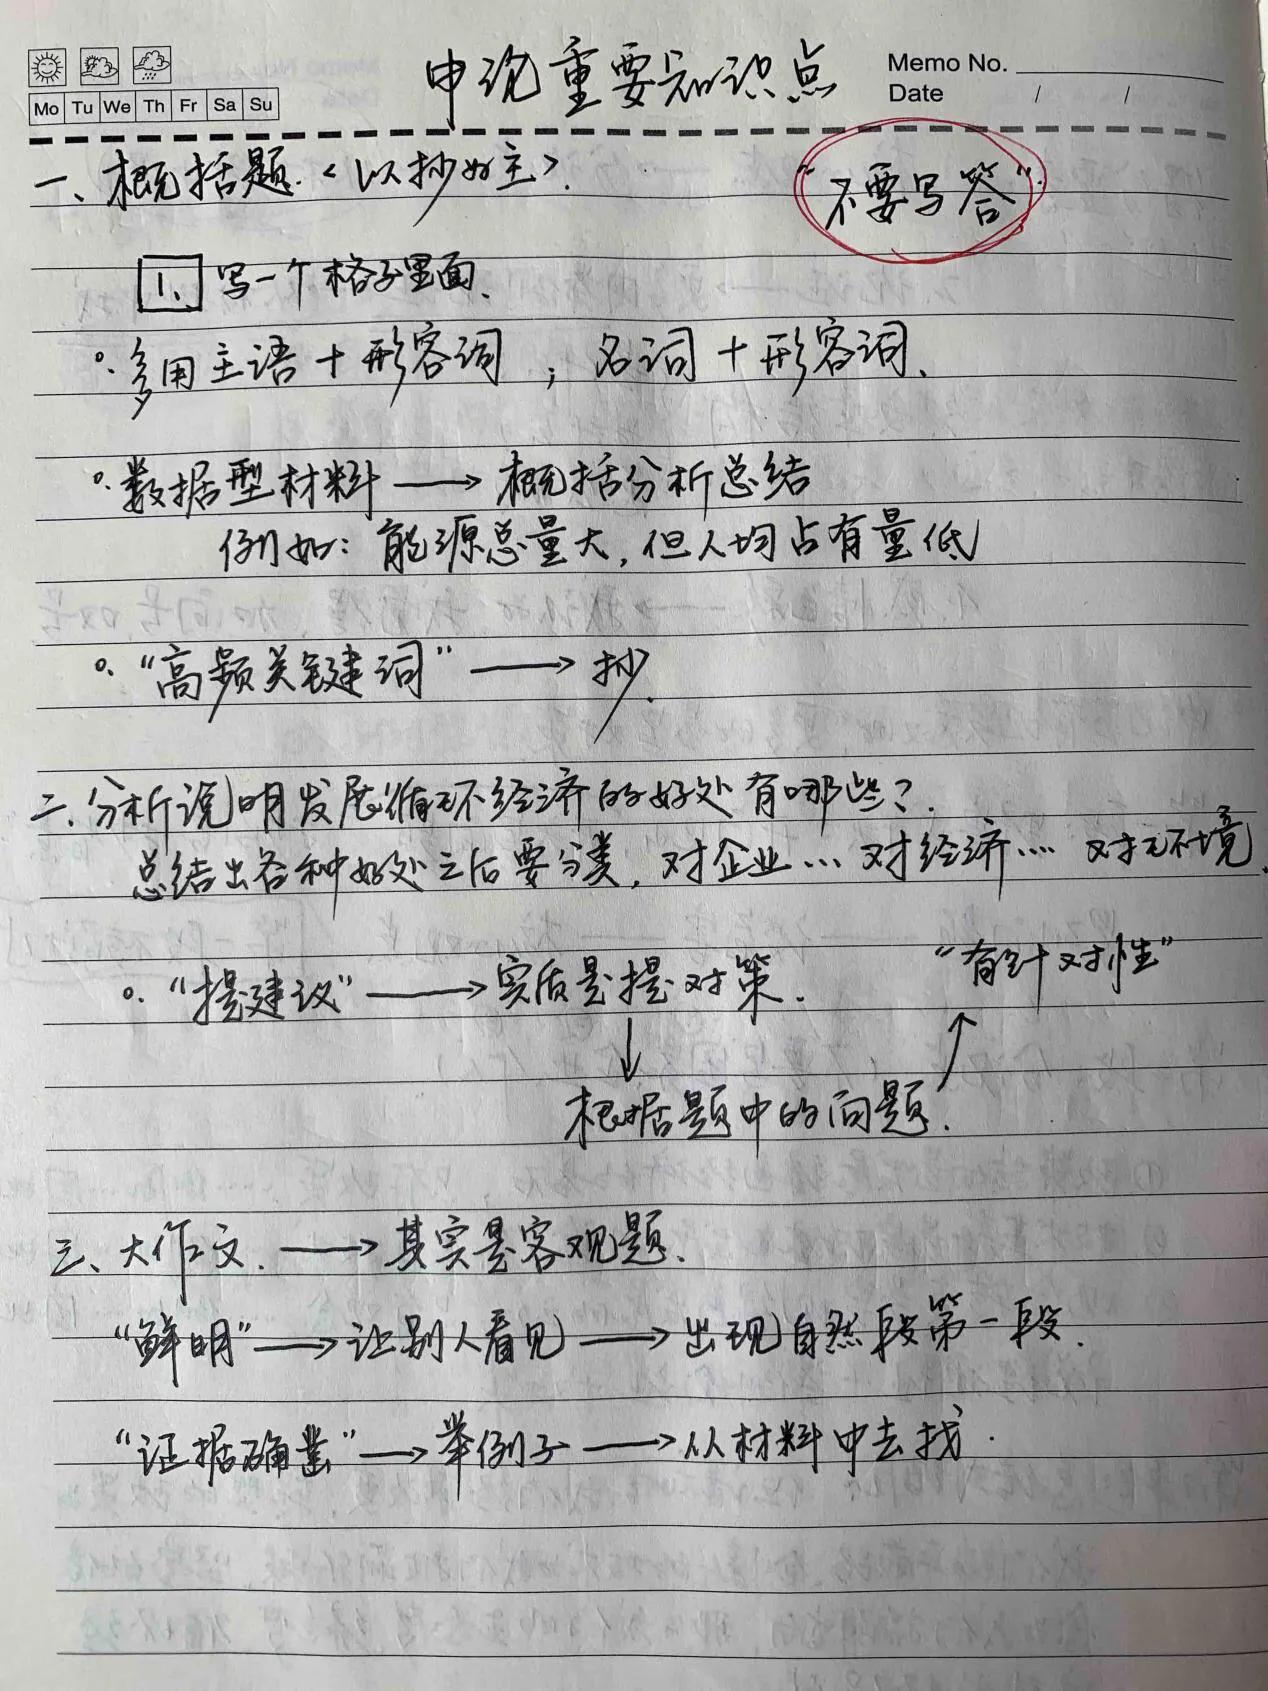 申论重要知识点
Memo No.
Date / /
Mo Tu We Th Fr Sa Su
一、概括题.<以抄为主>.
"不要写答".
1、写一个格子里面、
。多用主语+形容词;名词+形容词、
。数据型材料→概括分析总结
例如:能源总量大,但人均占有量低
。"高频关键词"→抄.
二、分析说明发展循环经济的好处有哪些?.
总结出各种好处之后要分类,对企业…对经济…对环境.
"有针对性"
。"提建议"→实质是提对策.
↓ ↗
根据题中的问题.
三、大作文.→其实是客观题.
"鲜明"→让别人看见→出现自然段第一段.
"证据确凿"→举例子→从材料中去找.